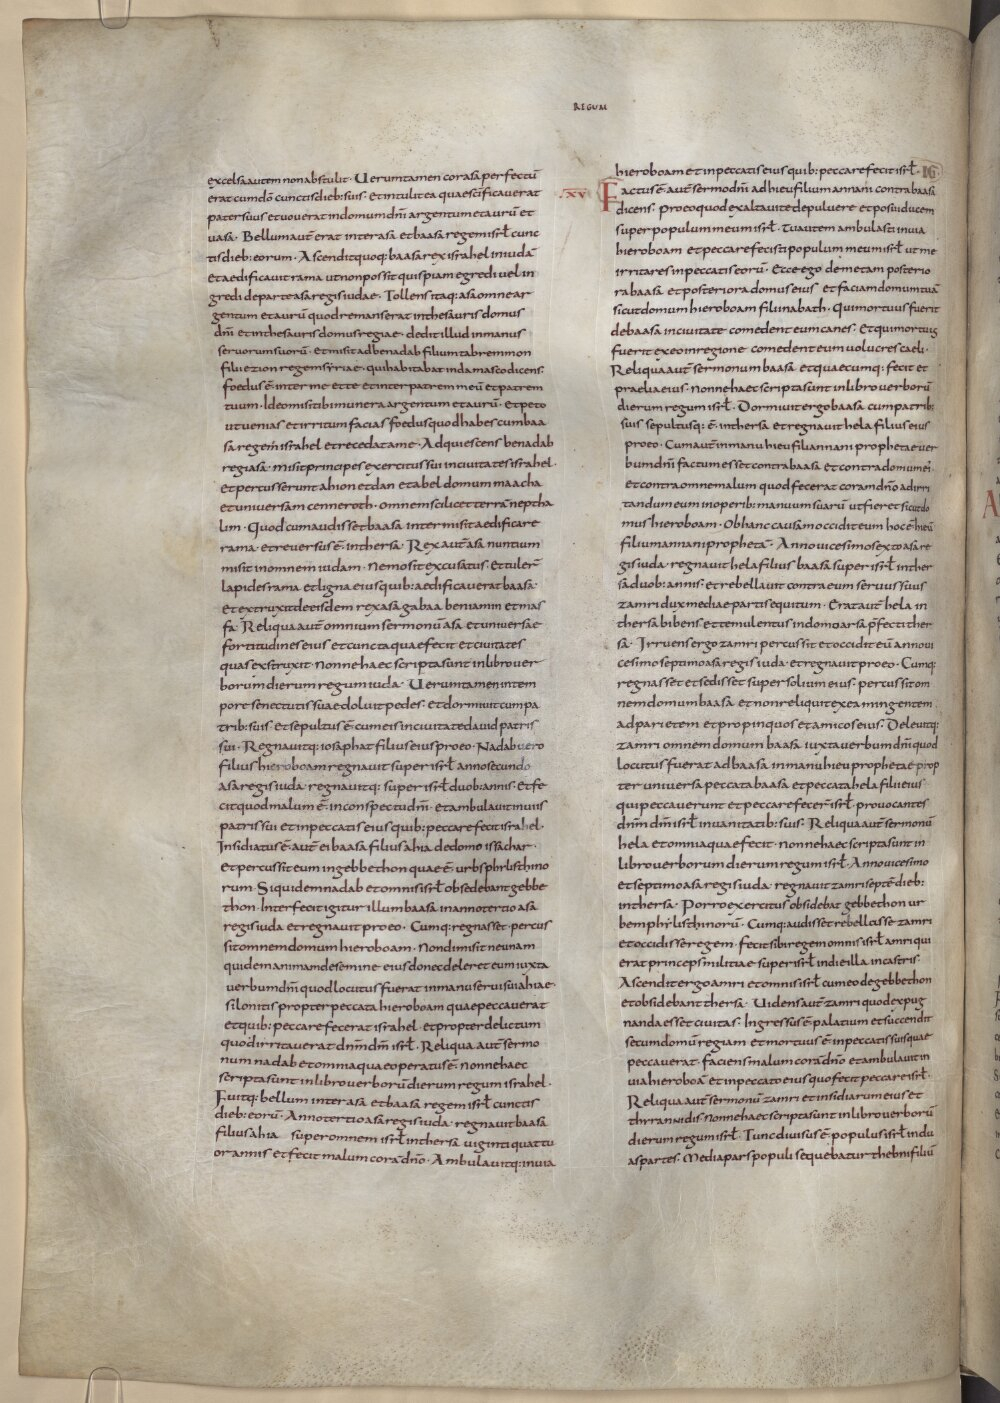 REGUM
excelsa autem non abstulit · Ueruntamen cor asa perfectū
erat cum dō cunctis dieb: suis · et intulit ea quae scīficauerat
pater suus et uouerat in domum dn̄i argentum et aurū et
uasa · Bellum aut̄ erat inter asa et baasa regem isrł cunc
tis dieb: eorum · Ascendit quoq: baasa rex israhel in iudā
et aedificauit rama ut non possit quispiam egredi uel in
gredi de parte asa regis iudae · Tollens itaq: asa omne ar
gentum et aurū quod remanserat in thesauris domus
dn̄i et in thesauris domus regiae · dedit illud in manus
seruorum suorū · et misit ad benadab filium tabremmon
filii ezion regem syriae · qui habitabat in damasco dicens ·
foedus ē inter me et te et inter patrem meū et patrem
tuum · Ideo misi tibi munera argentum et aurū · et peto
ut uenias et irritum facias foedus quod habes cum baa
sa regem israhel et recedat a me · Adquiescens benadab
regi asa · misit principes exercitus sui in ciuitates israhel ·
et percusserunt ahion et dan et abel domum maacha
et uniuersam cenneroth · omnem scilicet terrā neptha
lim · Quod cum audisset baasa intermisit aedificare
rama · et reuersus ē in thersa · Rex aut̄ asa nuntium
misit in omnem iudam · Nemo sit excusatus · Et tuler̄
lapides rama et ligna eius quib: aedificauerat baasa ·
et extruxit de eisdem rex asa gabaa beniamin et mas
fa · Reliqua aut̄ omnium sermonū asa et uniuersae
fortitudines eius et cuncta quae fecit et ciuitates
quas exstruxit nonne haec scripta sunt in libro uer
borum dierum regum iuda · Ueruntamen in tem
pore senectutis suae doluit pedes · et dormiuit cum pa
trib: suis · et sepultus ē cum eis in ciuitate dauid patris
sui · Regnauitq: iosaphat filius eius pro eo · Nadab uero
filius hieroboam regnauit super isrł anno secundo
asa regis iuda · regnauitq: super isrł duob: annis · et fe
cit quod malum ē in conspectu dn̄i · et ambulauit in uiis
patris sui et in peccatis eius quib: peccare fecit israhel ·
Insidiatus ē aut̄ ei baasa filius ahia de domo issachar ·
et percussit eum in gebbethon quae ē urbs philisthino
rum · Siquidem nadab et omnis isrł obsedebant gebbe
thon · Interfecit igitur illum baasa in anno tertio asa
regis iuda et regnauit pro eo · Cumq: regnasset percus
sit omnem domum hieroboam · Non dimisit ne unam
quidem animam de semine eius donec deleret eum iuxta
uerbum dn̄i quod locutus fuerat in manu serui sui ahiae ·
silonitis propter peccata hieroboam quae peccauerat
et quib: peccare fecerat israhel · et propter delictum
quod irritauerat dn̄m dm̄ isrł · Reliqua aut̄ sermo
num nadab et omnia quae operatus ē nonne haec
scripta sunt in libro uerborū dierum regum israhel ·
Fuitq: bellum inter asa et baasa regem isrł cunctis
dieb: eorū · Anno tertio asa regis iuda · regnauit baasa
filius ahia super omnem isrł in thersa uiginti quattu
or annis et fecit malum corā dn̄o · Ambulauitq: in uia
hieroboam et in peccatis eius quib: peccare fecit isrł ·
XVI
Factus ē aut̄ sermo dn̄i ad hieu filium annani contra baasa
dicens · Pro eo quod exaltaui te de puluere et posui ducem
super populum meum isrł · Tu autem ambulasti in uia
hieroboam et peccare fecisti populum meum isrł ut me
irritares in peccatis eorū · Ecce ego demetam posterio
ra baasa et posteriora domus eius et faciam domum tuā
sicut domum hieroboam filii nabath · Qui mortuus fuerit
de baasa in ciuitate comedent eum canes · Et qui mortuus
fuerit ex eo in regione comedent eum uolucres caeli ·
Reliqua aut̄ sermonum baasa et quaecumq: fecit et
praelia eius · nonne haec scripta sunt in libro uerborū
dierum regum isrł · Dormiuit ergo baasa cum patrib:
suis sepultusq: ē in thersa et regnauit hela filius eius
pro eo · Cum aut̄ in manu hieu filii annani prophetae uer
bum dn̄i factum esset contra baasa et contra domum ei:
et contra omne malum quod fecerat coram dn̄o ad irri
tandum eum in operib: manuum suarū ut fieret sicut do
mus hieroboam · Ob hanc causam occidit eum hoc ē hieu
filium annani prophetā · Anno uicesimo sexto asa re
gis iuda · regnauit hela filius baasa super isrł in ther
sa duob: annis · et rebellauit contra eum seruus suus
zamri dux mediae partis equitum · Erat aut̄ hela in
thersa bibens et temulentus in domo arsa p̄fecti ther
sa · Irruens ergo zamri percussit et occidit eū anno ui
cesimo septimo asa regis iuda · et regnauit pro eo · Cumq:
regnasset et sedisset super solium eius · percussit om
nem domum baasa et non reliquit ex ea mingentem
ad parietem et propinquos et amicos eius · Deleuitq:
zamri omnem domum baasa iuxta uerbum dn̄i quod
locutus fuerat ad baasa in manu hieu prophetae prop
ter uniuersa peccata baasa et peccata hela filii eius ·
qui peccauerunt et peccare fecer̄ isrł prouocantes
dn̄m dm̄ isrł in uanitatib: suis · Reliqua aut̄ sermonū
hela et omnia quae fecit · nonne haec scripta sunt in
libro uerborum dierum regum isrł · Anno uicesimo
et septimo asa regis iuda · regnauit zamri septē dieb:
in thersa · Porro exercitus obsidebat gebbethon ur
bem phylisthinorū · Cumq: audisset rebellasse zamri
et occidisse regem · fecit sibi regem omnis isrł amri qui
erat princeps militiae super isrł in die illa in castris ·
Ascendit ergo amri et omnis isrł cum eo de gebbethon
et obsidebant thersa · Uidens aut̄ zamri quod expug
nanda esset ciuitas · Ingressus ē palatium et succendit
se cum domū regiam et mortuus ē in peccatis suis quae
peccauerat · faciens malum corā dn̄o et ambulauit in
uia hieroboā et in peccato eius quo fecit peccare isrł ·
Reliqua aut̄ sermonū zamri et insidiarum eius et
thrrannidis · Nonne haec scripta sunt in libro uerborū
dierum regum isrł · Tunc diuisus ē populus isrł in du
as partes · Media pars populi sequebatur thebni filiū